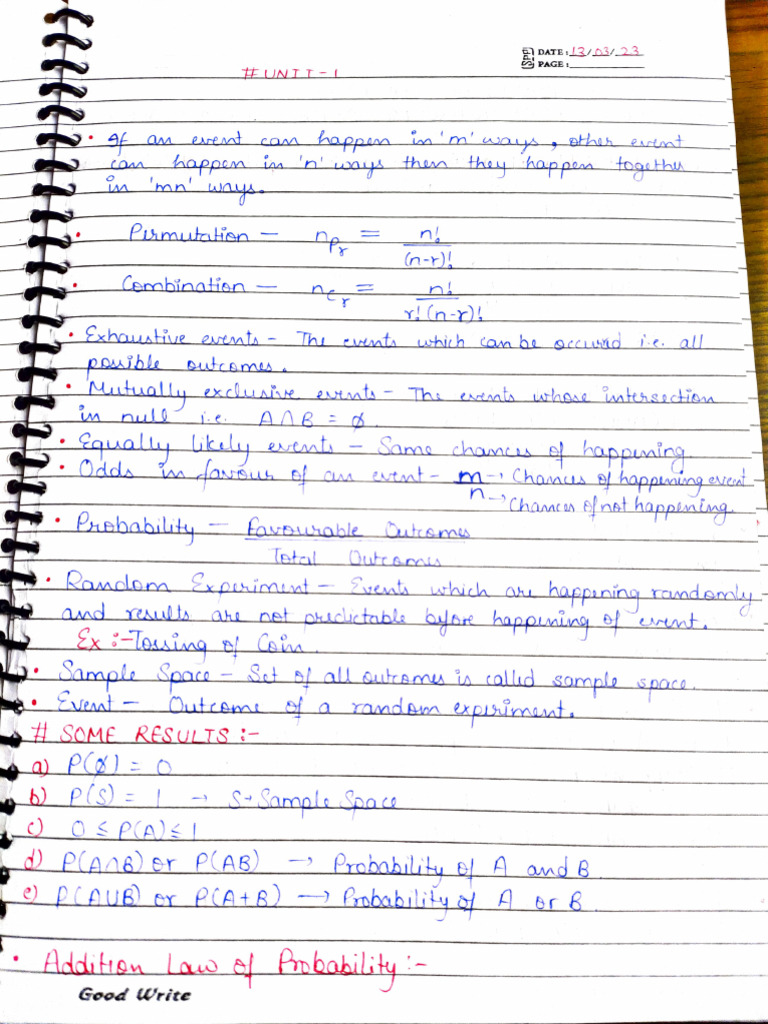 SPP DATE: 13/03/23
PAGE:
# UNIT-1
• If an event can happen in 'm' ways, other event
can happen in 'n' ways then they happen together
in 'mn' ways.
• Permutation — nPr = n!/(n-r)!
• Combination — nCr = n!/r!(n-r)!
• Exhaustive events - The events which can be occured i.e. all
possible outcomes.
• Mutually exclusive events - The events whose intersection
in null i.e. A∩B = ϕ.
• Equally likely events - Same chances of happening.
• Odds in favour of an event - m → Chances of happening event
n → Chances of not happening.
• Probability — Favourable Outcomes
Total Outcomes
• Random Experiment - Events which are happening randomly
and results are not predictable before happening of event.
Ex :- Tossing of Coin.
• Sample Space - Set of all outcomes is called sample space.
• Event - Outcome of a random experiment.
# SOME RESULTS :-
a) P(ϕ) = 0
b) P(S) = 1 → S → Sample Space
c) 0 ≤ P(A) ≤ 1
d) P(A∩B) or P(AB) → Probability of A and B
e) P(AUB) or P(A+B) → Probability of A or B
• Addition Law of Probability :-
Good Write